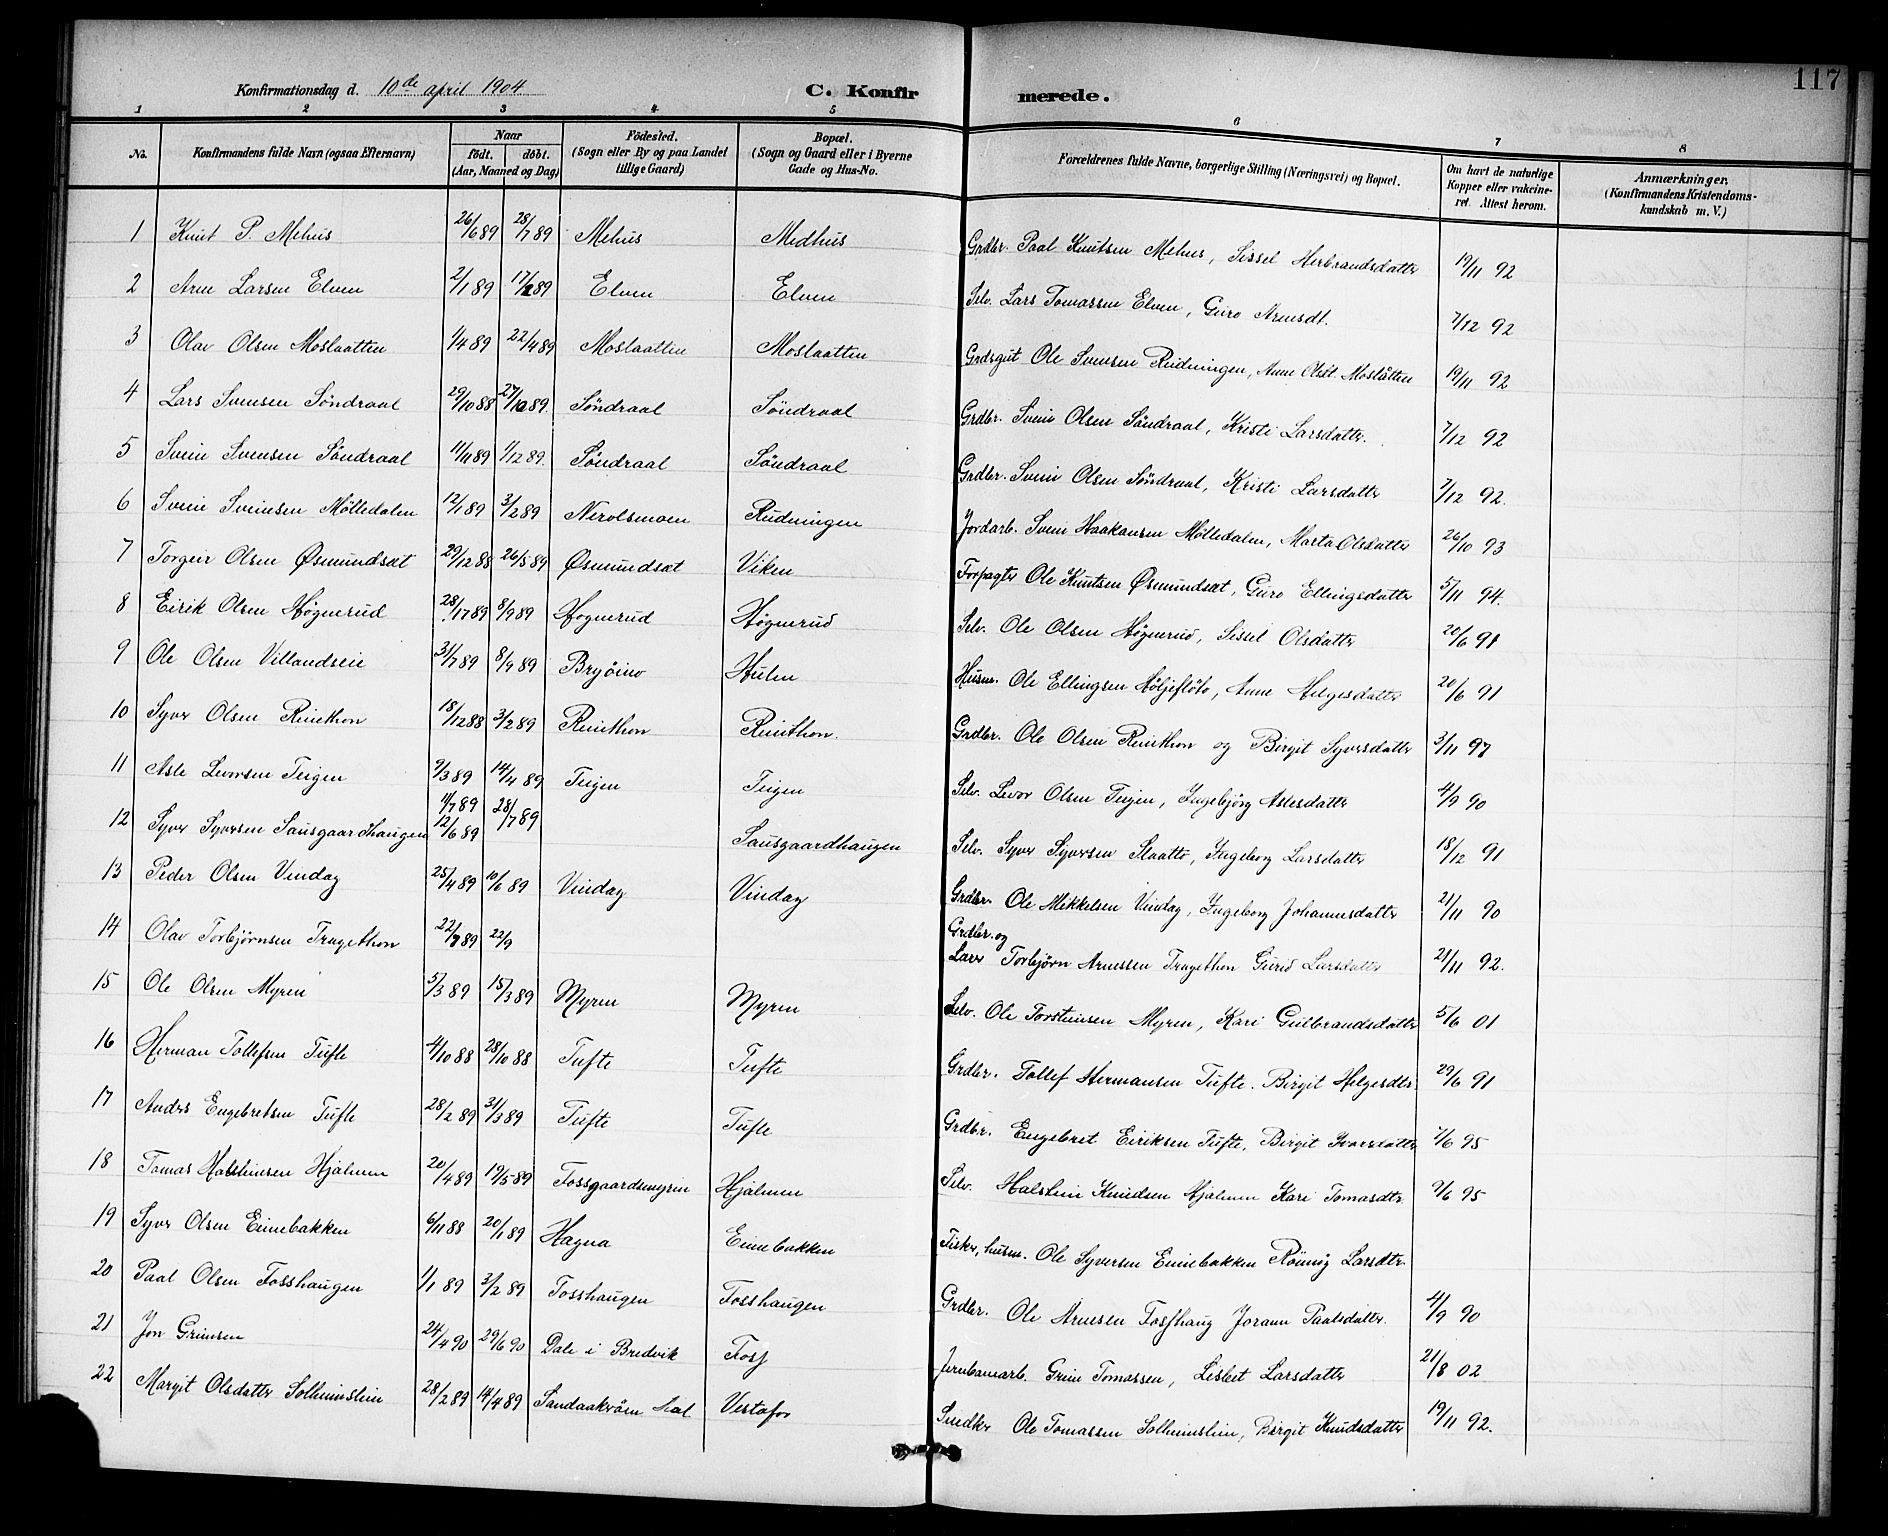 117
Konfirmationsdag d. 10de april 1904.
C. Konfirmerede.
1 2 3 4 5 6 7 8
No. Konfirmandens fulde Navn (ogsaa Efternavn) Naar födt. döbt. (Aar, Maaned og Dag) Födested. (Sogn eller By og paa Landet tillige Gaard) Bopæl. (Sogn og Gaard eller i Byerne Gade og Hus-No. Forældrenes fulde Navne, borgerlige Stilling (Næringsvei) og Bopæl. Om havt de naturlige Kopper eller vakcineret. Attest herom. Anmærkninger. (Konfirmandens Kristendomskundskab m. V.)
1 Knut P. Mehus 26/6 89 28/7 89 Mehus Medhus Grdbr. Paal Knutsen Mehus, Sissel Herbrandsdatter 19/11 92
2 Arne Larsen Elven 2/1 89 17/2 89 Elven Elven Selv. Lars Tomassen Elven, Guro Arnesdt. 7/12 92
3 Olav Olsen Moslaatten 1/4 89 22/4 89 Moslaatten Moslaatten Grdsgut Ole Svensen Rudningen, Anne Olsdt. Moslåtten 19/11 92
4 Lars Svensen Söndraal 29/10 88 89. Söndraal Söndraal Grdbr. Svein Olsen Söndraal, Kristi Larsdatter. 7/12 92
5 Svein Svensen Söndraal 11/11 89 1/12 89. Söndraal Söndraal Grdbr. Svein Olsen Söndraal, Kristi Larsdatter 7/12 92.
6 Svein Sveinsen Mölledalen 12/1 89 3/2 89 Nerolsmoen Rudningen Jordarb. Svein Haakansen Mölledalen, Marta Olsdatter 26/10 93
7 Torgeir Olsen Øsmundsæt 29/12 88 26/5 89 Øsmundsæt Viken Forpagter Ole Knutsen Øsmundsæt, Guro Ellingsdatter 5/11 94.
8 Eirik Olsen Høgnerud 28/7 89 8/9 89 Høgnerud Høgnerud Selv. Ole Olsen Høgnerud, Sissel Olsdatter 20/6 91
9 Ole Olsen Villandseie 31/7 89 8/9 89 Bryöino Hulen Husm. Ole Ellingsen Höljeflöto, Anne Helgesdatter 20/6 91
10 Syver Olsen Reinthon 18/12 88 3/2 89 Reinthon Reinthon. Grdbr. Ole Olsen Reinthon og Birgit Syversdatter 3/11 97
11 Asle Levorsen Teigen 9/3 89 14/4 89 Teigen Teigen Selv. Levor Olsen Teigen, Ingebjörg Aslesdatter 4/9 90
12 Syver Syversen Sausgaardhaugen 11/7 89 12/6 89 28/7 89 Sausgaardhaugen Selv. Syver Syversen Slaatto, Ingeborg Larsdatter 18/12 91
13 Peder Olsen Vindag 25/4 89 10/6 89 Vindag Vindag Grdbr. Ole Mikkelsen Vindag, Ingeborg Johannesdatter 21/11 90
14 Olav Torbjørnsen Tragethon 22/7 89 22/9 Grdbr. og
Lærer Torbjørn Arnessen Tragethon Gurid Larsdatter 21/11 92.
15 Ole Olsen Myren 5/3 89 15/3 89 Myren Myren Selv. Ole Torsteinsen Myren, Kari Gulbrandsdatter 5/6 01
16 Herman Tollefsen Tufte 4/10 88 28/10 88 Tufte Tufte Grdbr. Tollef Hermansen Tufte. Birgit Helgesdtr. 29/6 91
17 Anders Engebretsen Tufte 28/2 89 31/3 89 Tufte Tufte Grdbr. Engebret Eiriksen Tufte, Birgit Ivarsdatter 7/6 95
18 Tomas Halsteinsen Hjälmen 20/4 89 19/5 89 Fossgaardsmyren Hjälmen Selv. Halstein Knudsen Hjälmen Kari Tomasdtr. 9/6 95
19 Syver Olsen Eimebakken 6/11 88 20/1 89 Hagna Eimebakken Fisker, husm. Ole Syversen Eimebakken Rönnög Larsdtr.
20 Paal Olsen Fosshaugen 1/1 89 3/2 89 Fosshaugen Fosshaugen Grdbr. Ole Arnesen Fosshaug Jorann Paalsdatter. 4/9 90
21 Jon Grimsen 24/4 90 29/6 90 Dale i Bredvik Foss Jernbanearb. Grim Tomassen, Lisbet Larsdatter 21/8 02
22 Margit Olsdatter Solheimslien 28/2 89 14/4 89 Sandaakröen Aal Vestafor Snedker Ole Tomassen Solheimslien, Birgit Knudsdatter 19/11 92.